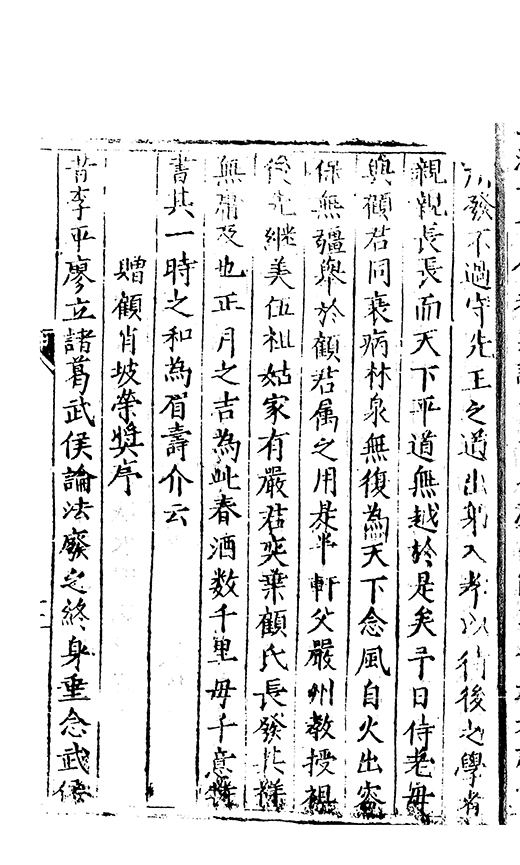 發不過守先王之道出弟入孝以待後之學者
親親長長而天下平道無越於是矣予日侍老母
與顧君同衰病林泉無復為天下念風自火出家
保無疆舉於顧君属之用是半軒父嚴州教授視
後先繼美伍祖姑家有嚴君奕葉顧氏長發其祥
無庸及也正月之吉為此春酒数千里毋千意特
書其一時之和為眉壽介云
贈顧肖坡榮奬序
昔李平廖立諸葛武侯論法廢之終身重念武侯